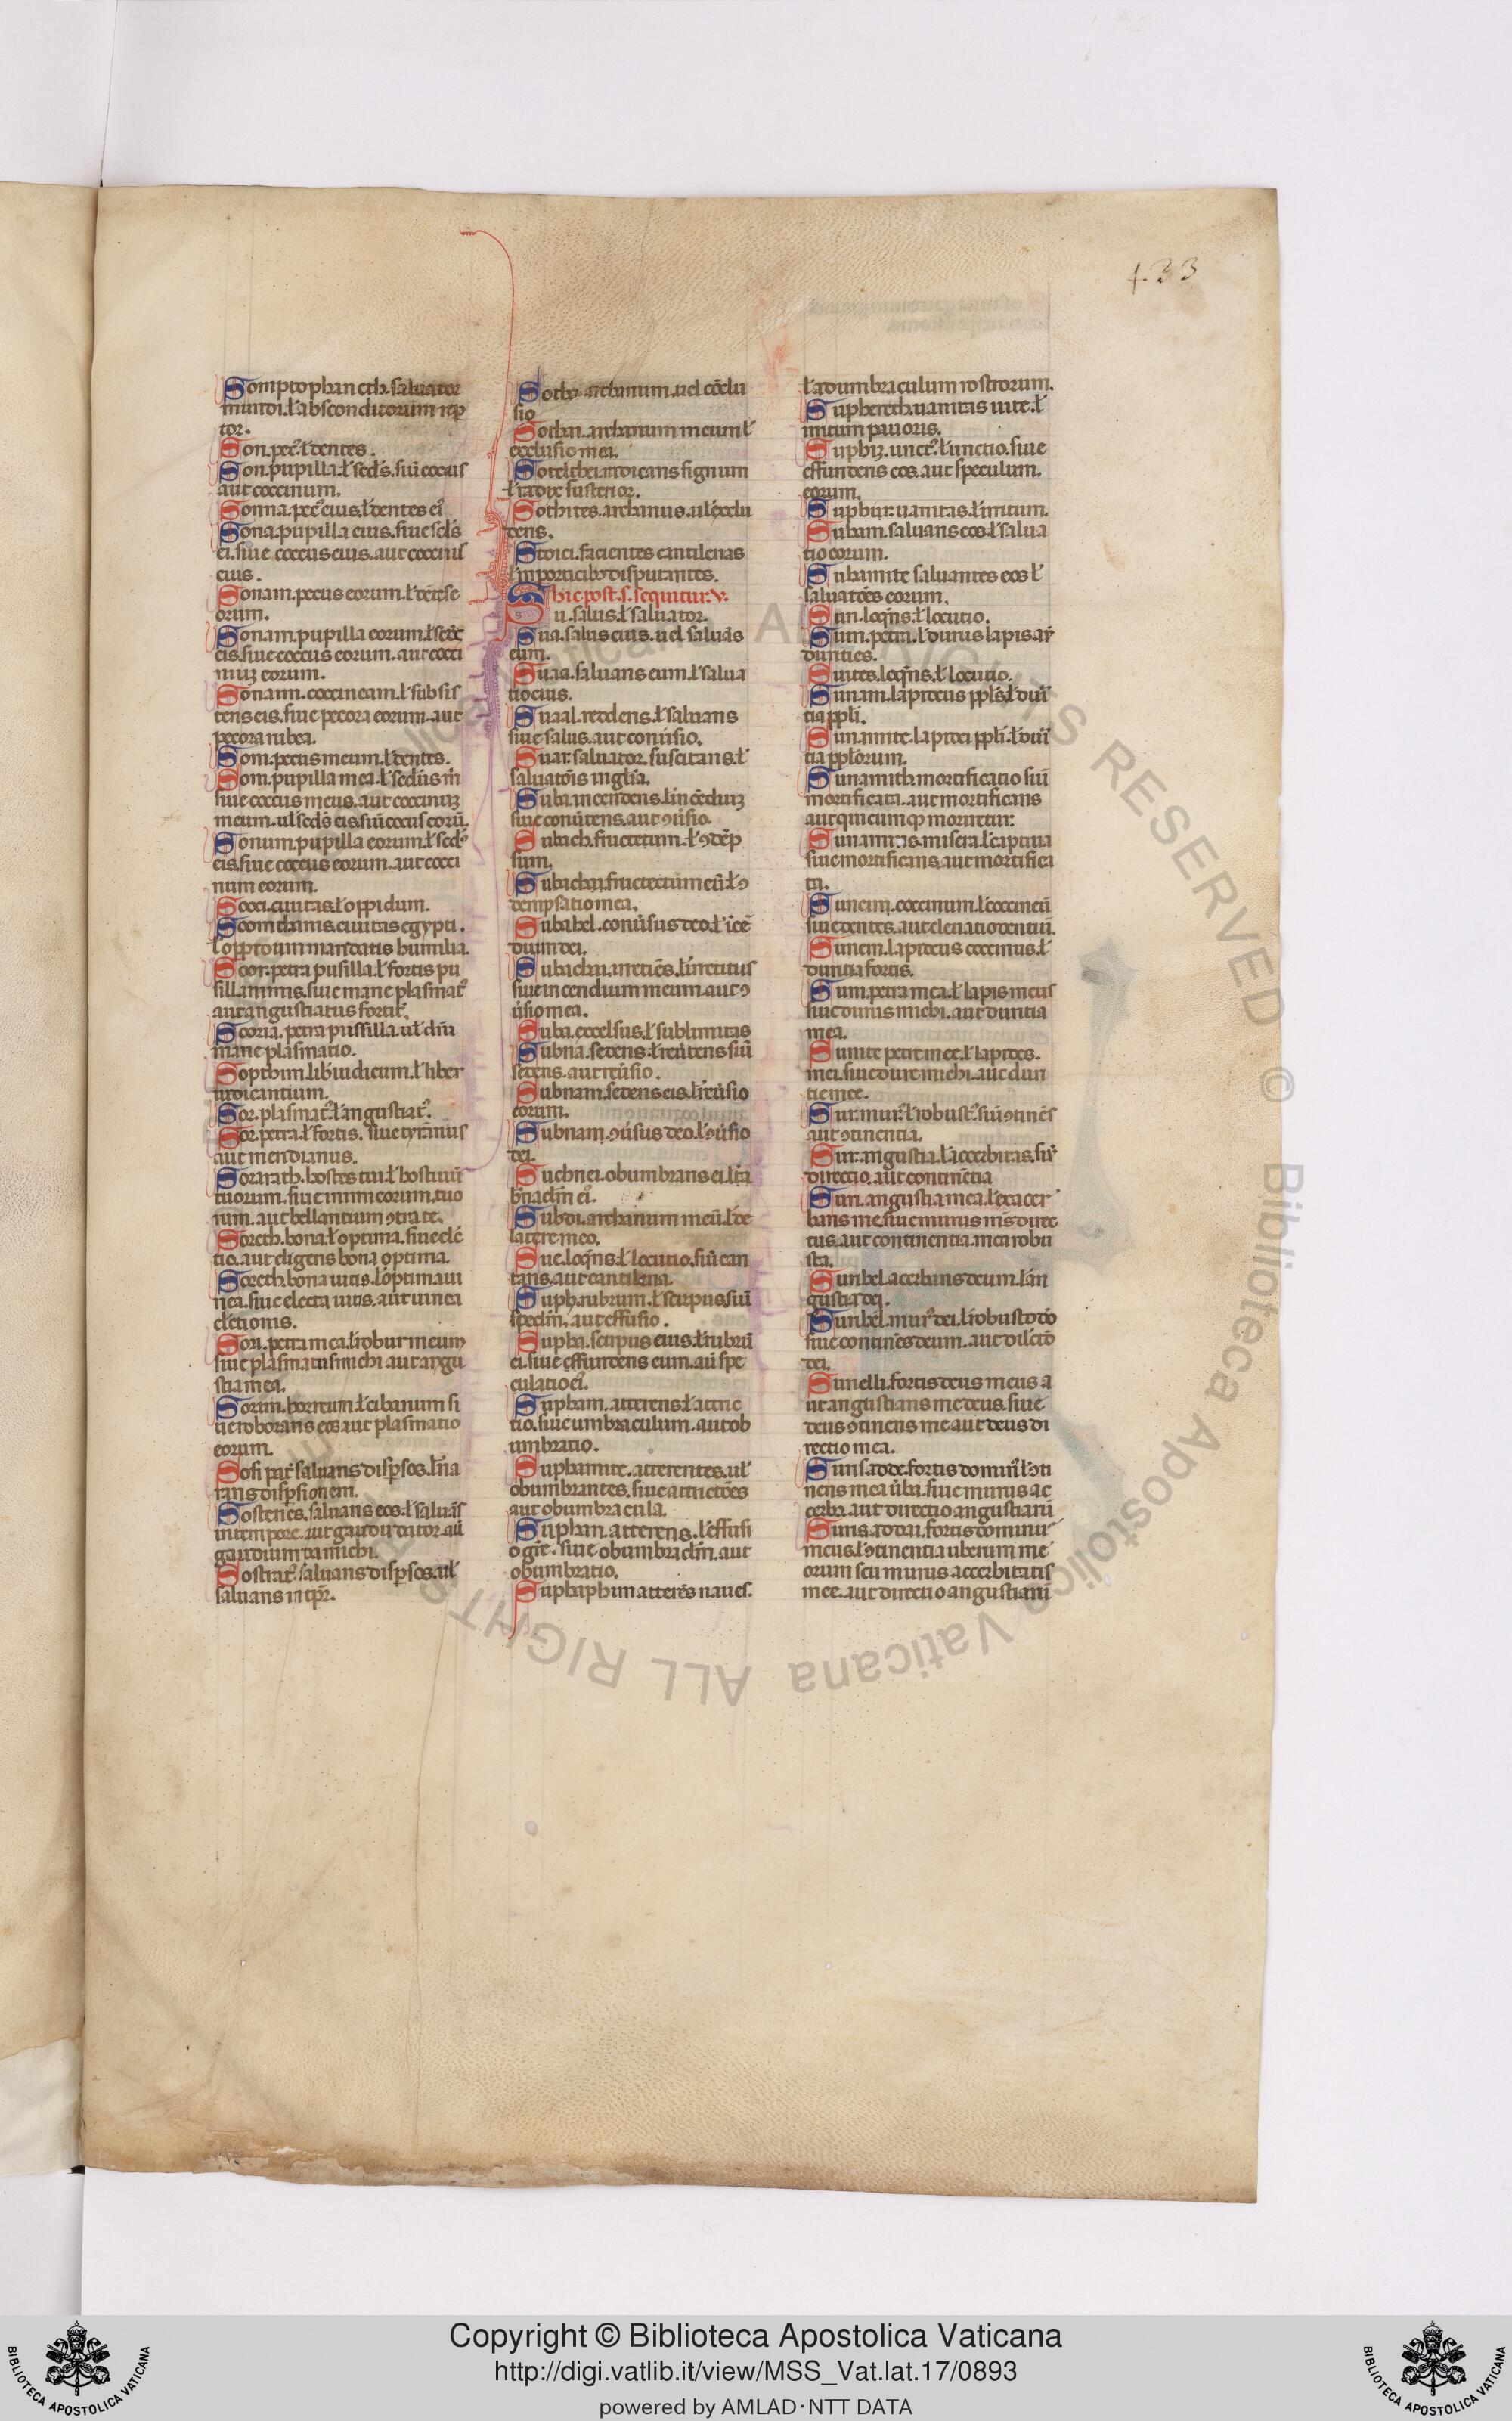 433
Somptophaneth. saluator
mundi. ł absconditorum rep̄
tor.
Son. pec᷒. ł dentes.
Son. pupilla. ł seds̄. siū coccus
aut coccinum.
Sonna. pec᷒ eius. ł dentes ei᷒
Sona. pupilla eius. siue seds̄
ei. siue coccus eius. aut coccinus
eius.
Sonam. pecus eorum. ł dentes
eorum.
Sonam. pupilla eorum. ł
eis. siue coccus eorum. aut cocci
nuꝫ eorum.
Sonam. coccineam. ł subsis
tens eis. siue pecora eorum. aut
pecora rubea.
Soni. pecus meum. ł dentes.
Soni. pupilla mea. ł sedēs m̄
siue coccus meus. aut coccinuꝫ
meum. ul sedēs eis. siū coccus eorū.
Sonum. pupilla eorum. ł sedēs
eis. siue coccus eorum. aut cocci
num eorum.
Sooci. ciuitas. ł oppidum.
Soomthanis. ciuitas egypti.
ł opprobrium mandatis humilia.
Soor. petra pusilla. ł fortis pu
sillanimis. siue mane plasmat᷒
aut angustiatus fortit᷒.
Sooria. petra pussilla. ul dn̄i
mane plasmatio.
Sophim. lib᷒ iudicum. ł liber
iudicantium.
Sor. plasmat᷒. ł angustiat᷒.
Sor. petra. ł fortis. siue tyrānus
aut meridianus.
Sorarath. hostes tui. ł hostiuū
tuorum. siue inimicorum. tuo
rum. aut bellantium ꝯtra te.
Soreth. bona. ł optima. siue elec̄
tio. aut eligens bona optima.
Soreth. bona uitis. ł optima ui
nea. siue electa uitis. aut uinea
electionis.
Sori. petra mea. ł robur meum
siue plasmatus michi aut angu
stia mea.
Sorim. horreum. ł cibanum si
ue roborans eos. aut plasmatio
eorum.
Sosipat᷒. saluans dispsos. ł na
tans dispsionem.
Sostenes. saluans eos. ł saluās
in tempore. aut gaudii dator. aū
gaudium da michi.
Sostrat᷒. saluans dispsos. ul
saluans in tp̄r.
Sotha. archanum. uel cōclu
sio
Sothai. archanum meum. ł
cōclusio mea.
Sotelchei. indicans signum
ł radix fusterior.
Sothites. archanus. ul cōclu
dens.
Stoici. facientes cantilenas
ł in porticibꝫ disputantes.
S hic post. s. sequitur. v.
Su. salus. ł saluator.
Sua. salus eius. uel saluās
eum.
Suaa. saluans eum. ł salua
tio eius.
Suaal. reddens. ł saluans
siue salus. aut conuersio.
Suar. saluator. suscitans. ł
saluatōis in gl̄ia.
Suba. incendens. ł incēduiꝫ
siue conūtens. aut ꝯūsio.
Subach. fructetum. ł ꝯdēp
sum.
Subachai. fructectum eū. ł ꝯ
dempsatio mea.
Subahel. conūsus deo. ł icē
dium dei.
Subachai. irretiēs. ł irretitus
siue incendium meum. aut ꝯ
ūsio mea.
Suba. excelsus. ł sublimitas
Subna. sedens. ł reūtens siū
sedens. aut reūsio.
Subnam. sedens eis. ł reūsio
eorum.
Subnam. ꝯūsus deo. ł ꝯūsio
dei.
Suchnei. obumbrans ei. ł ta
b̄naclm̄ ei᷒.
Subdi. archanum meū. ł de
latere meo.
Sue. loqn̄s. ł locutio. siū can
tans. aut cantilena.
Suph. rubrum. ł scirpus. siū
speclm̄. aut effusio.
Supha. scirpus eius. ł rubrū
ei. siue effundens eum. aū spe
culatio ei᷒.
Supham. atterens. ł attric
tio. siue umbraculum. aut ob
umbratio.
Suphamite. atterentes. ul
obumbrantes. siue attrictōes
aut obumbracula.
Suphan. atterens. ł effusi
o gr̄e. siue obumbraclm̄. aut
obumbratio.
Suphaphim. atterēs naues.
ł adumbraculum rostrorum.
Suphereth. uanitas uite. ł
initum pauoris.
Suphiꝫ. unct᷒. ł unctio. siue
effundens eos. aut speculum.
eorum.
Suphur. uanitas. ł initum.
Subam. saluans eos. ł salua
tio eorum.
Subamite saluantes eos ł
saluatōes eorum.
Sun. loqn̄s. ł locutio.
Sum. petra. ł durus lapis. aū
durities.
Suites. loqn̄s. ł locutio.
Sunam. lapideus ppls̄. ł duri
tia ppli.
Sunamite. lapidei ppli. ł duri
tia pplorum.
Sunamith. mortificatio siū
mortificata. aut mortificans
aut quicumqꝫ morietur.
Sunamitis. misera. ł captiua
siue mortificans. aut mortifica
ta.
Suneim. coccinum. ł coccineū
siue dentes. aut eleuatio dentiū.
Sunem. lapideus coccinus. ł
duritia fortis.
Suni. petra mea. ł lapis meus
siue durus michi. aut duritia
mea.
Sunite petre mee. ł lapides.
mei. siue dure michi. aut duri
tie mee.
Sur. mur᷒. ł robust᷒. siū ꝯtinēs
aut ꝯtinentia.
Sur. angustia. ł acerbitas. siū
directio. aut continētia
Suri. angustia mea. ł exacer
bans me. siue murus m̄s. direc
tus. aut continentia mea robu
sta.
Surihel. acerbans deum. ł an
gustia dei.
Surihel. mur᷒ dei. ł robusto dō
siue continēs deum. aut dilectō
dei.
Surielli. fortis deus meus. a
ut angustians me deus. siue
deus ꝯtinens me aut deus di
rectio mea.
Surisadde. fortis domin᷒. ł ꝯti
nens mea uba. siue murus ac
cerba. aut directio angustiarū
Surisaddai. fortis domin᷒
meus. ł ꝯtinentia uberum me
orum seu murus accerbitatis
mee. aut directio angustiarū
Copyright © Biblioteca Apostolica Vaticana
http://digi.vatlib.it/view/MSS_Vat.lat.17/0893
powered by AMLAD·NTT DATA
BIBLIOTECA APOSTOLICA VATICANA
BIBLIOTECA APOSTOLICA VATICANA